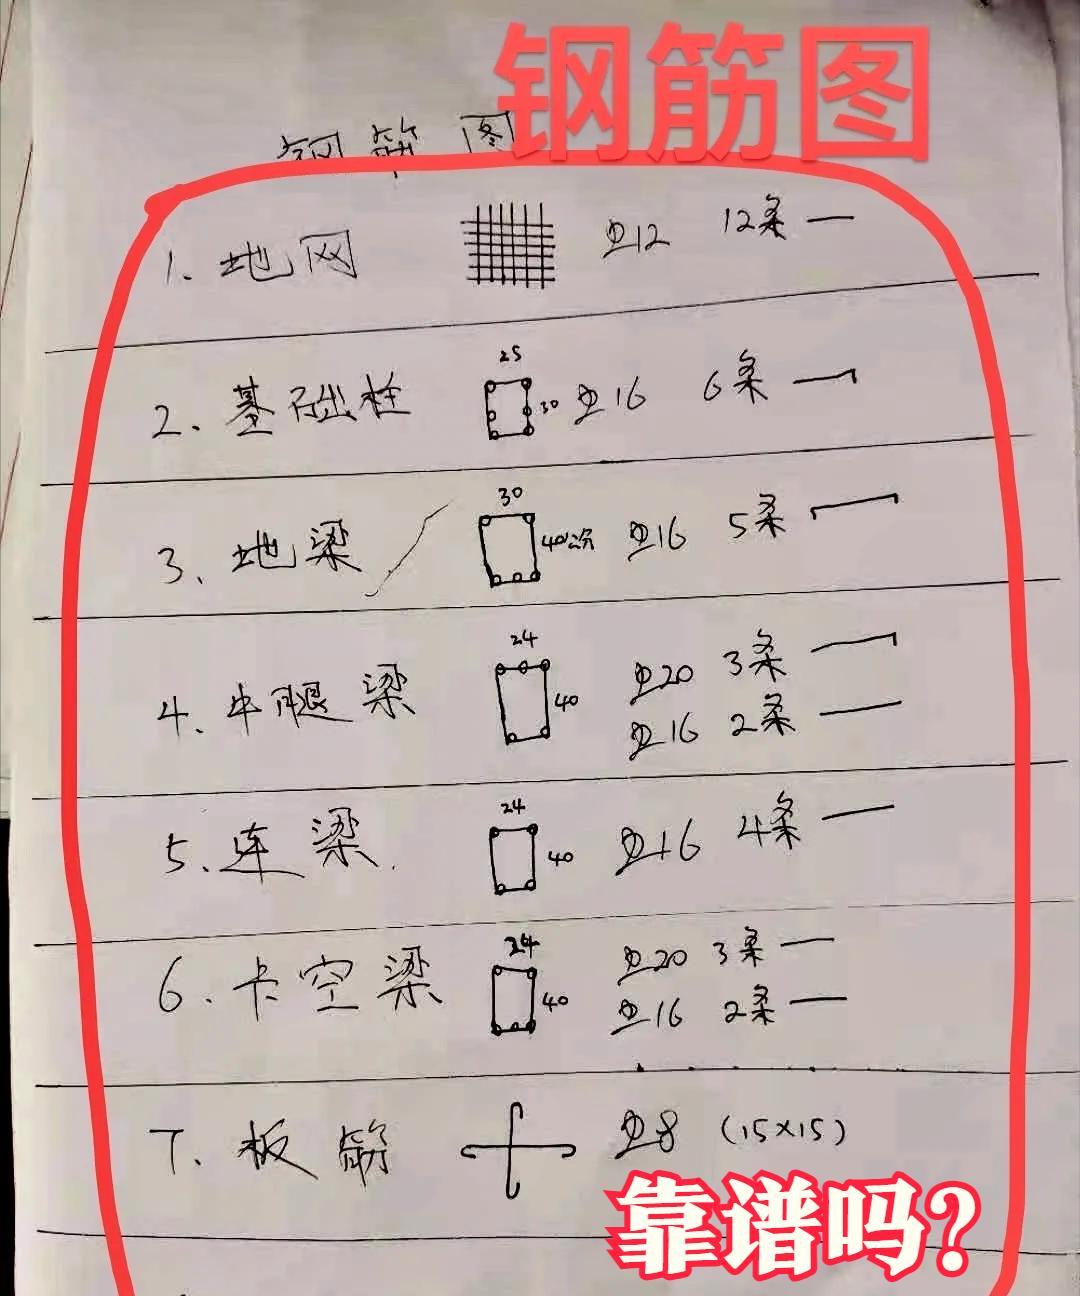 钢筋图
钢筋图
1、地网 Φ12 12条
2、基础柱 25 30 Φ16 6条
3、地梁 30 40公分 Φ16 5条
4、牛腿梁 24 40 Φ20 3条
Φ16 2条
5、连梁 24 40 Φ16 4条
6、卡空梁 24 40 Φ20 3条
Φ16 2条
7、板筋 Φ8 (15×15)
靠谱吗?